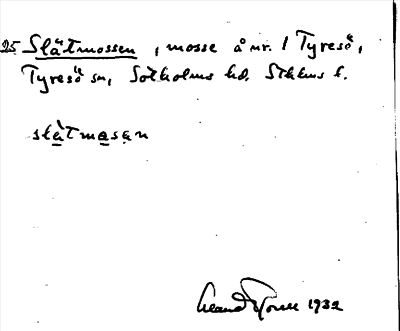 25 Slätmossen, mosse å nr. 1 Tyresö,
Tyresö sn, Sotholms hd. Sthlms l.
slàtmasan
1932